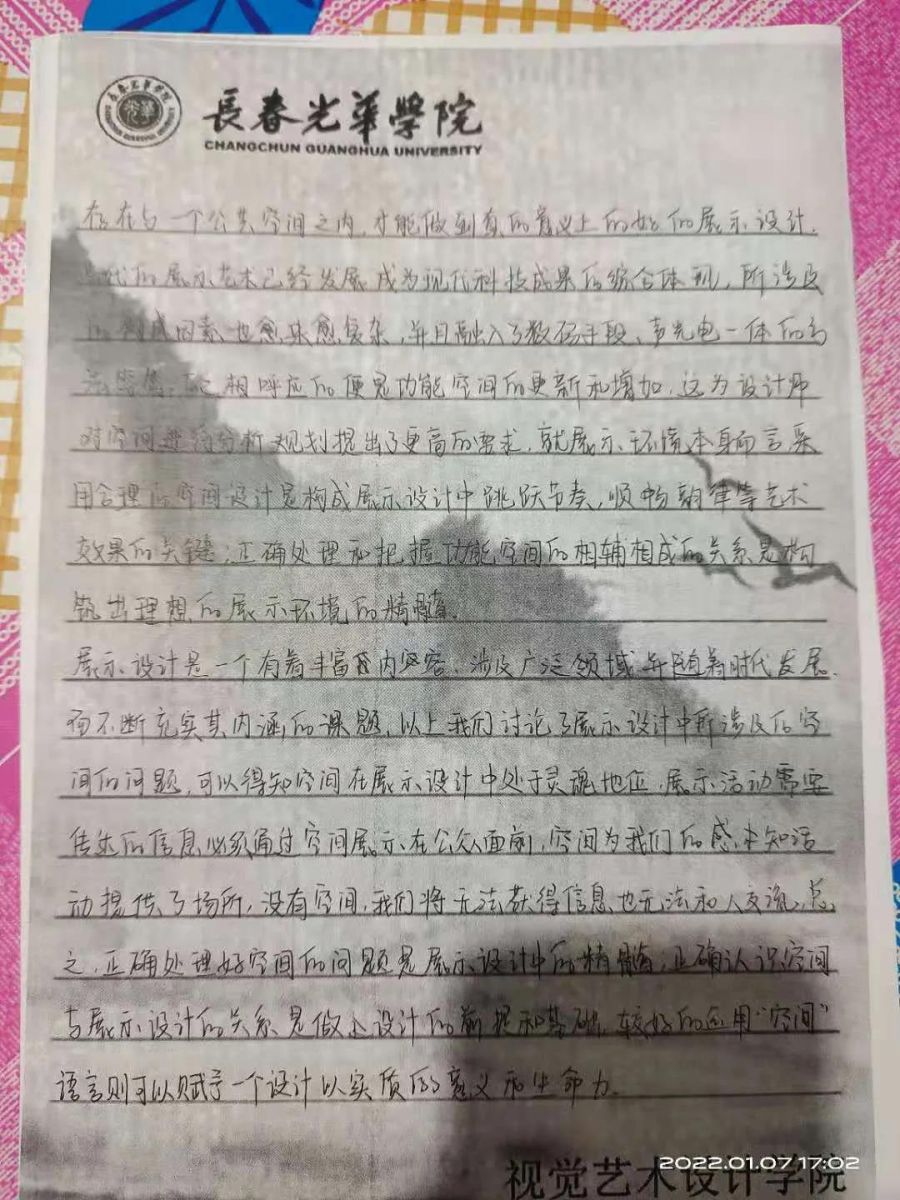 長春光華學院
CHANGCHUN GUANGHUA UNIVERSITY
存在与一个公共空间之内,才能做到真的意义上的好的展示设计.
代的展示艺术已经发展成为现代科技成果的综合体现,所涉及
的构成因素也愈来愈复杂,并且融入了数码手段、声光电一体的高
相呼应的便是功能空间的更新和增加,这为设计师
对空间进行分析规划提出了更高的要求,就展示环境本身而言采
用合理的空间设计是构成展示设计中跳跃节奏,顺畅韵律等艺术
效果的关键;正确处理和把握功能空间的相辅相成的关系是构
筑出理想的展示环境的精髓.
展示设计是一个有着丰富内容.涉及广泛领域并随着时代发展
而不断充实其内涵的课题,以上我们讨论了展示设计中所涉及的空
间的问题,可以得知空间在展示设计中处于灵魂地位,展示活动需要
传达的信息必须通过空间展示在公众面前,空间为我们的感知活
动提供了场所,没有空间,我们将无法获得信息也无法和人交流,总
之,正确处理好空间的问题是展示设计中的精髓;正确认识空间
与展示设计的关系是做上设计的前提和基础,较好的应用“空间”
语言则可以赋予一个设计以实质的意义和生命力.
视觉艺术设计学院
2022.01.07 17:02